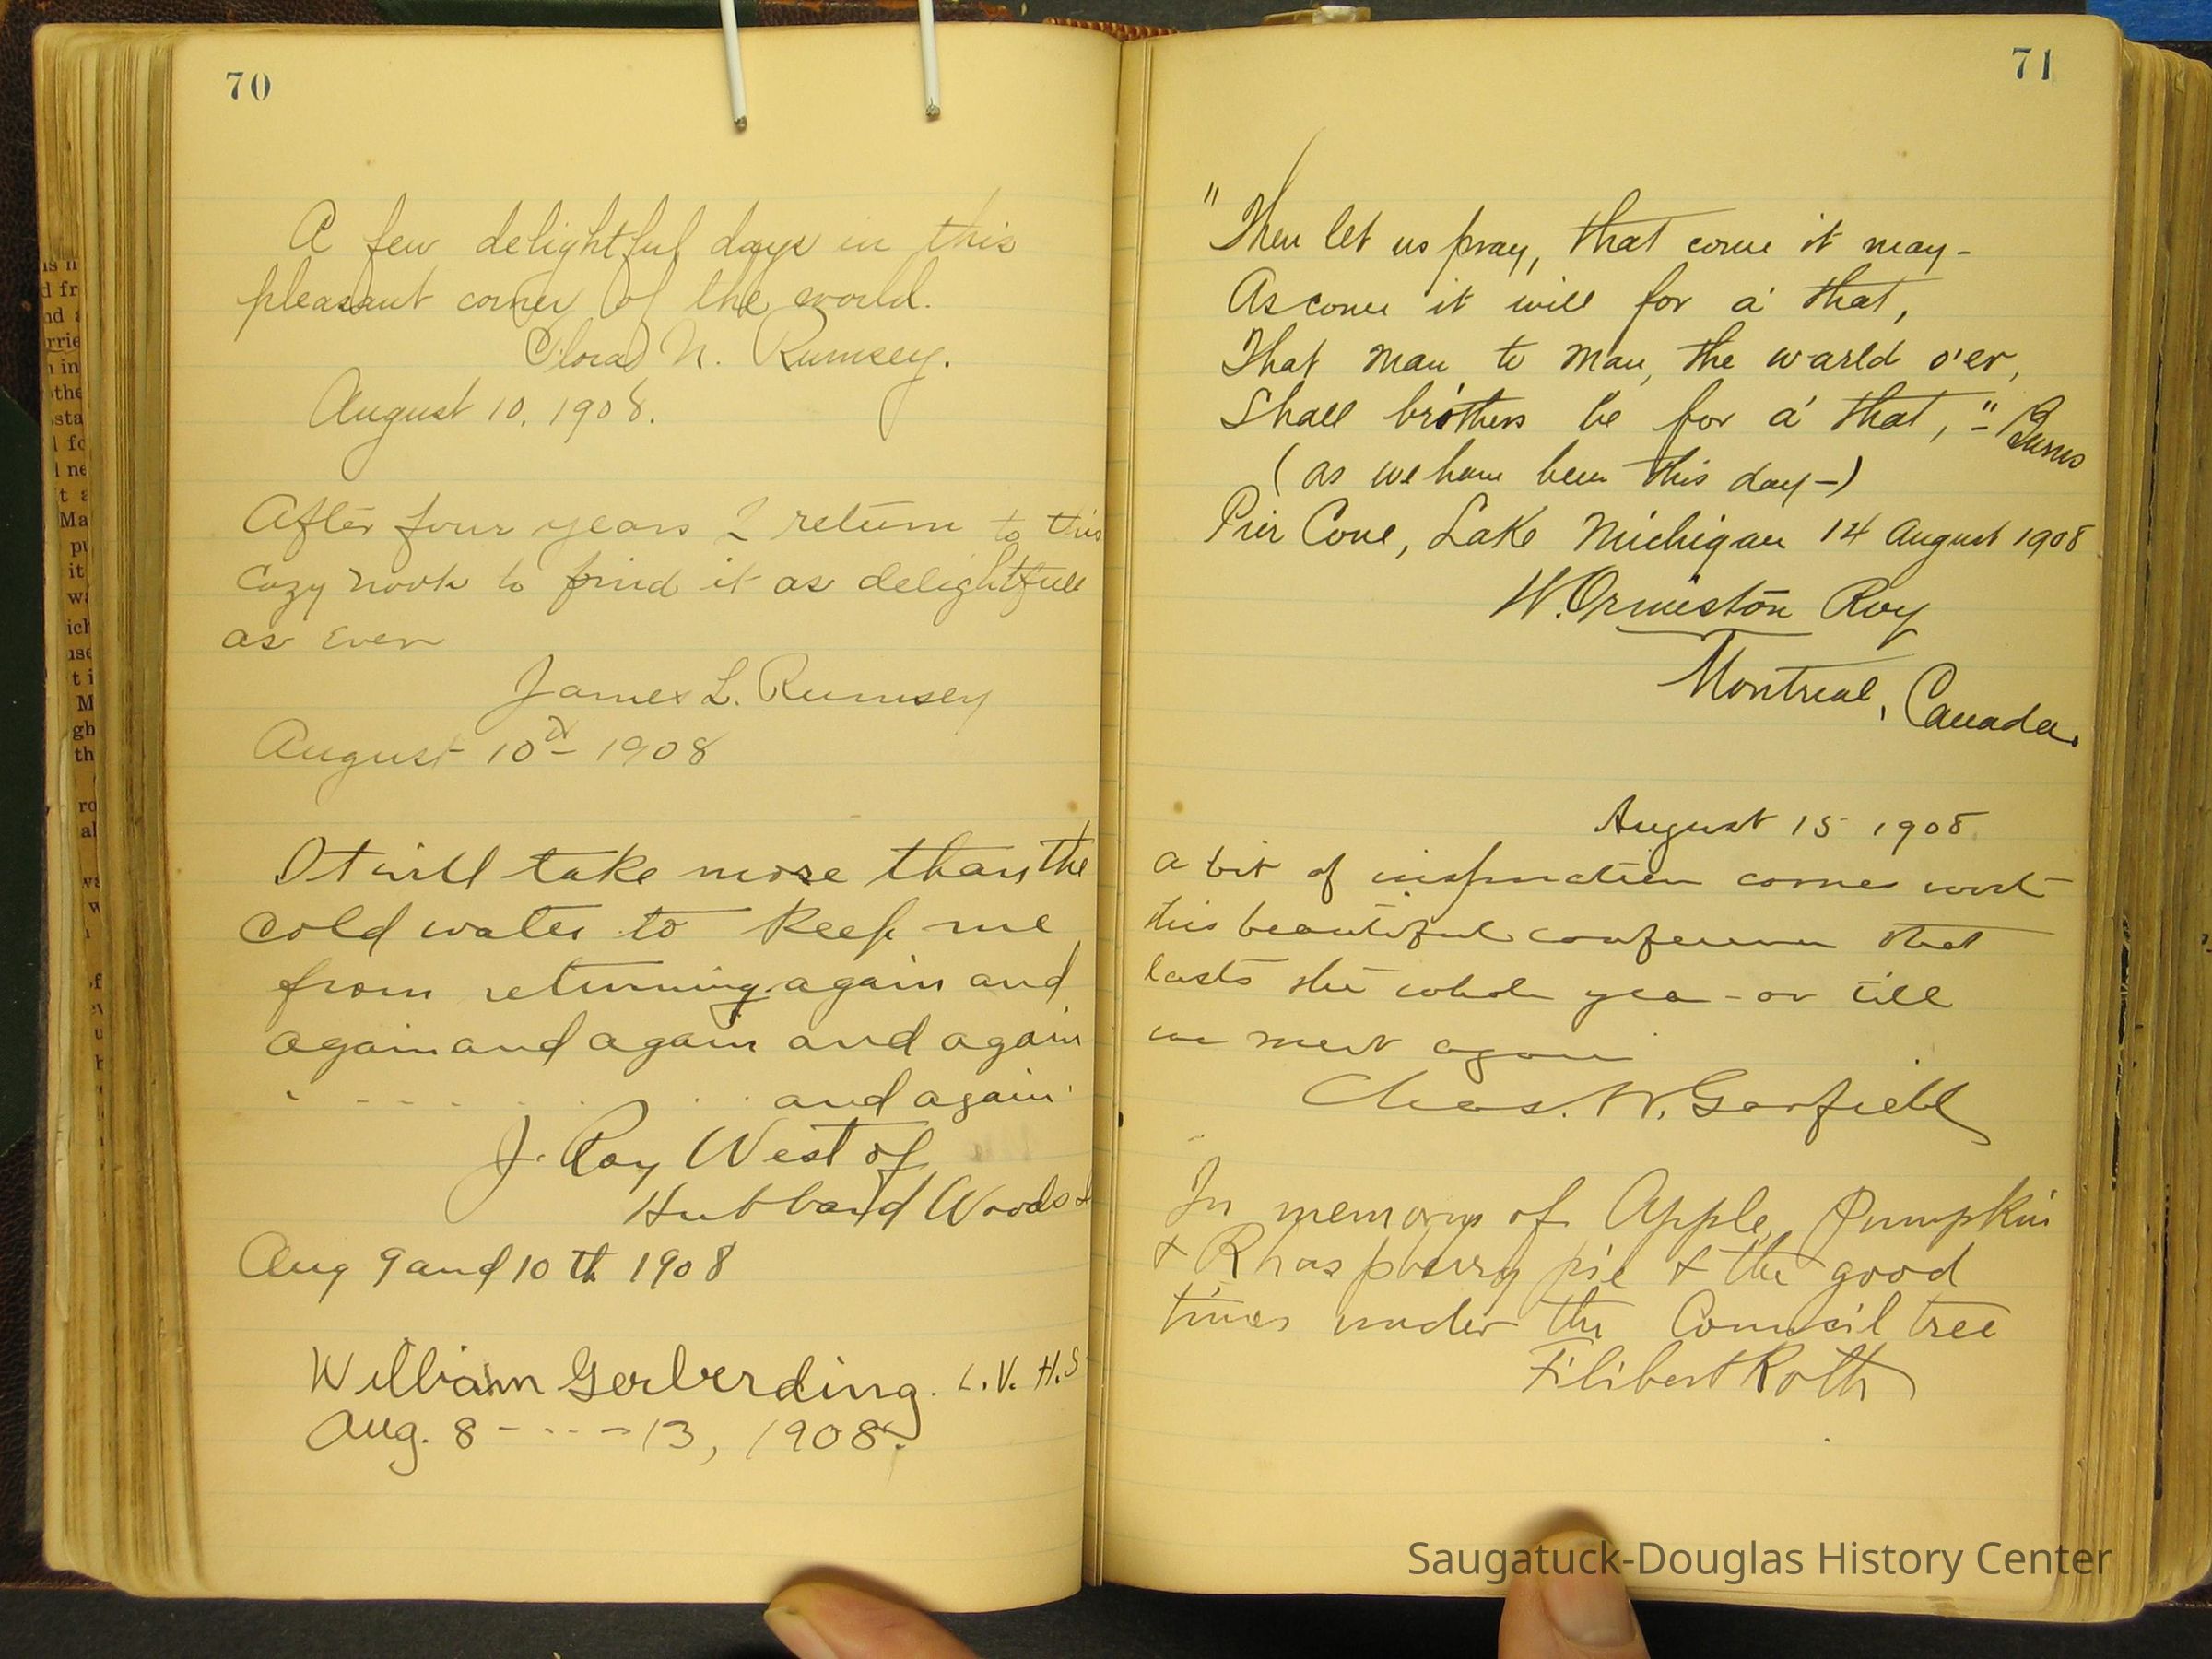 70
A few delightful days in this
pleasant corner of the world.
Clara N. Rumsey.
August 10, 1908.
After four years I return to this
Cozy nook to find it as delightfull
as ever
James L. Rumsey
August 10th 1908
It will take more than the
cold water to keep me
from returning again and
again and again and again
and again
J. Roy West of
Hubbard Woods
Aug 9 and 10th 1908
William Gerberding. L.V.H.S
Aug. 8 - - - - 13, 1908.
71
"Then let us pray, that come it may -
As come it will for a' that,
That man to man, the warld o'er,
Shall brothers be for a' that," - Burns
(as we have been this day -)
Pier Cove, Lake Michigan 14 August 1908
W. Ormiston Roy
Montreal, Canada.
August 15 1908
a bit of inspiration comes with
this beautiful conference that
lasts the whole year - or till
we meet again
Chas. W. Garfield
In memory of Apple, Pumpkin
& Rhaspberry pie & the good
times under the Council tree
Filibert Roth
Saugatuck-Douglas History Center